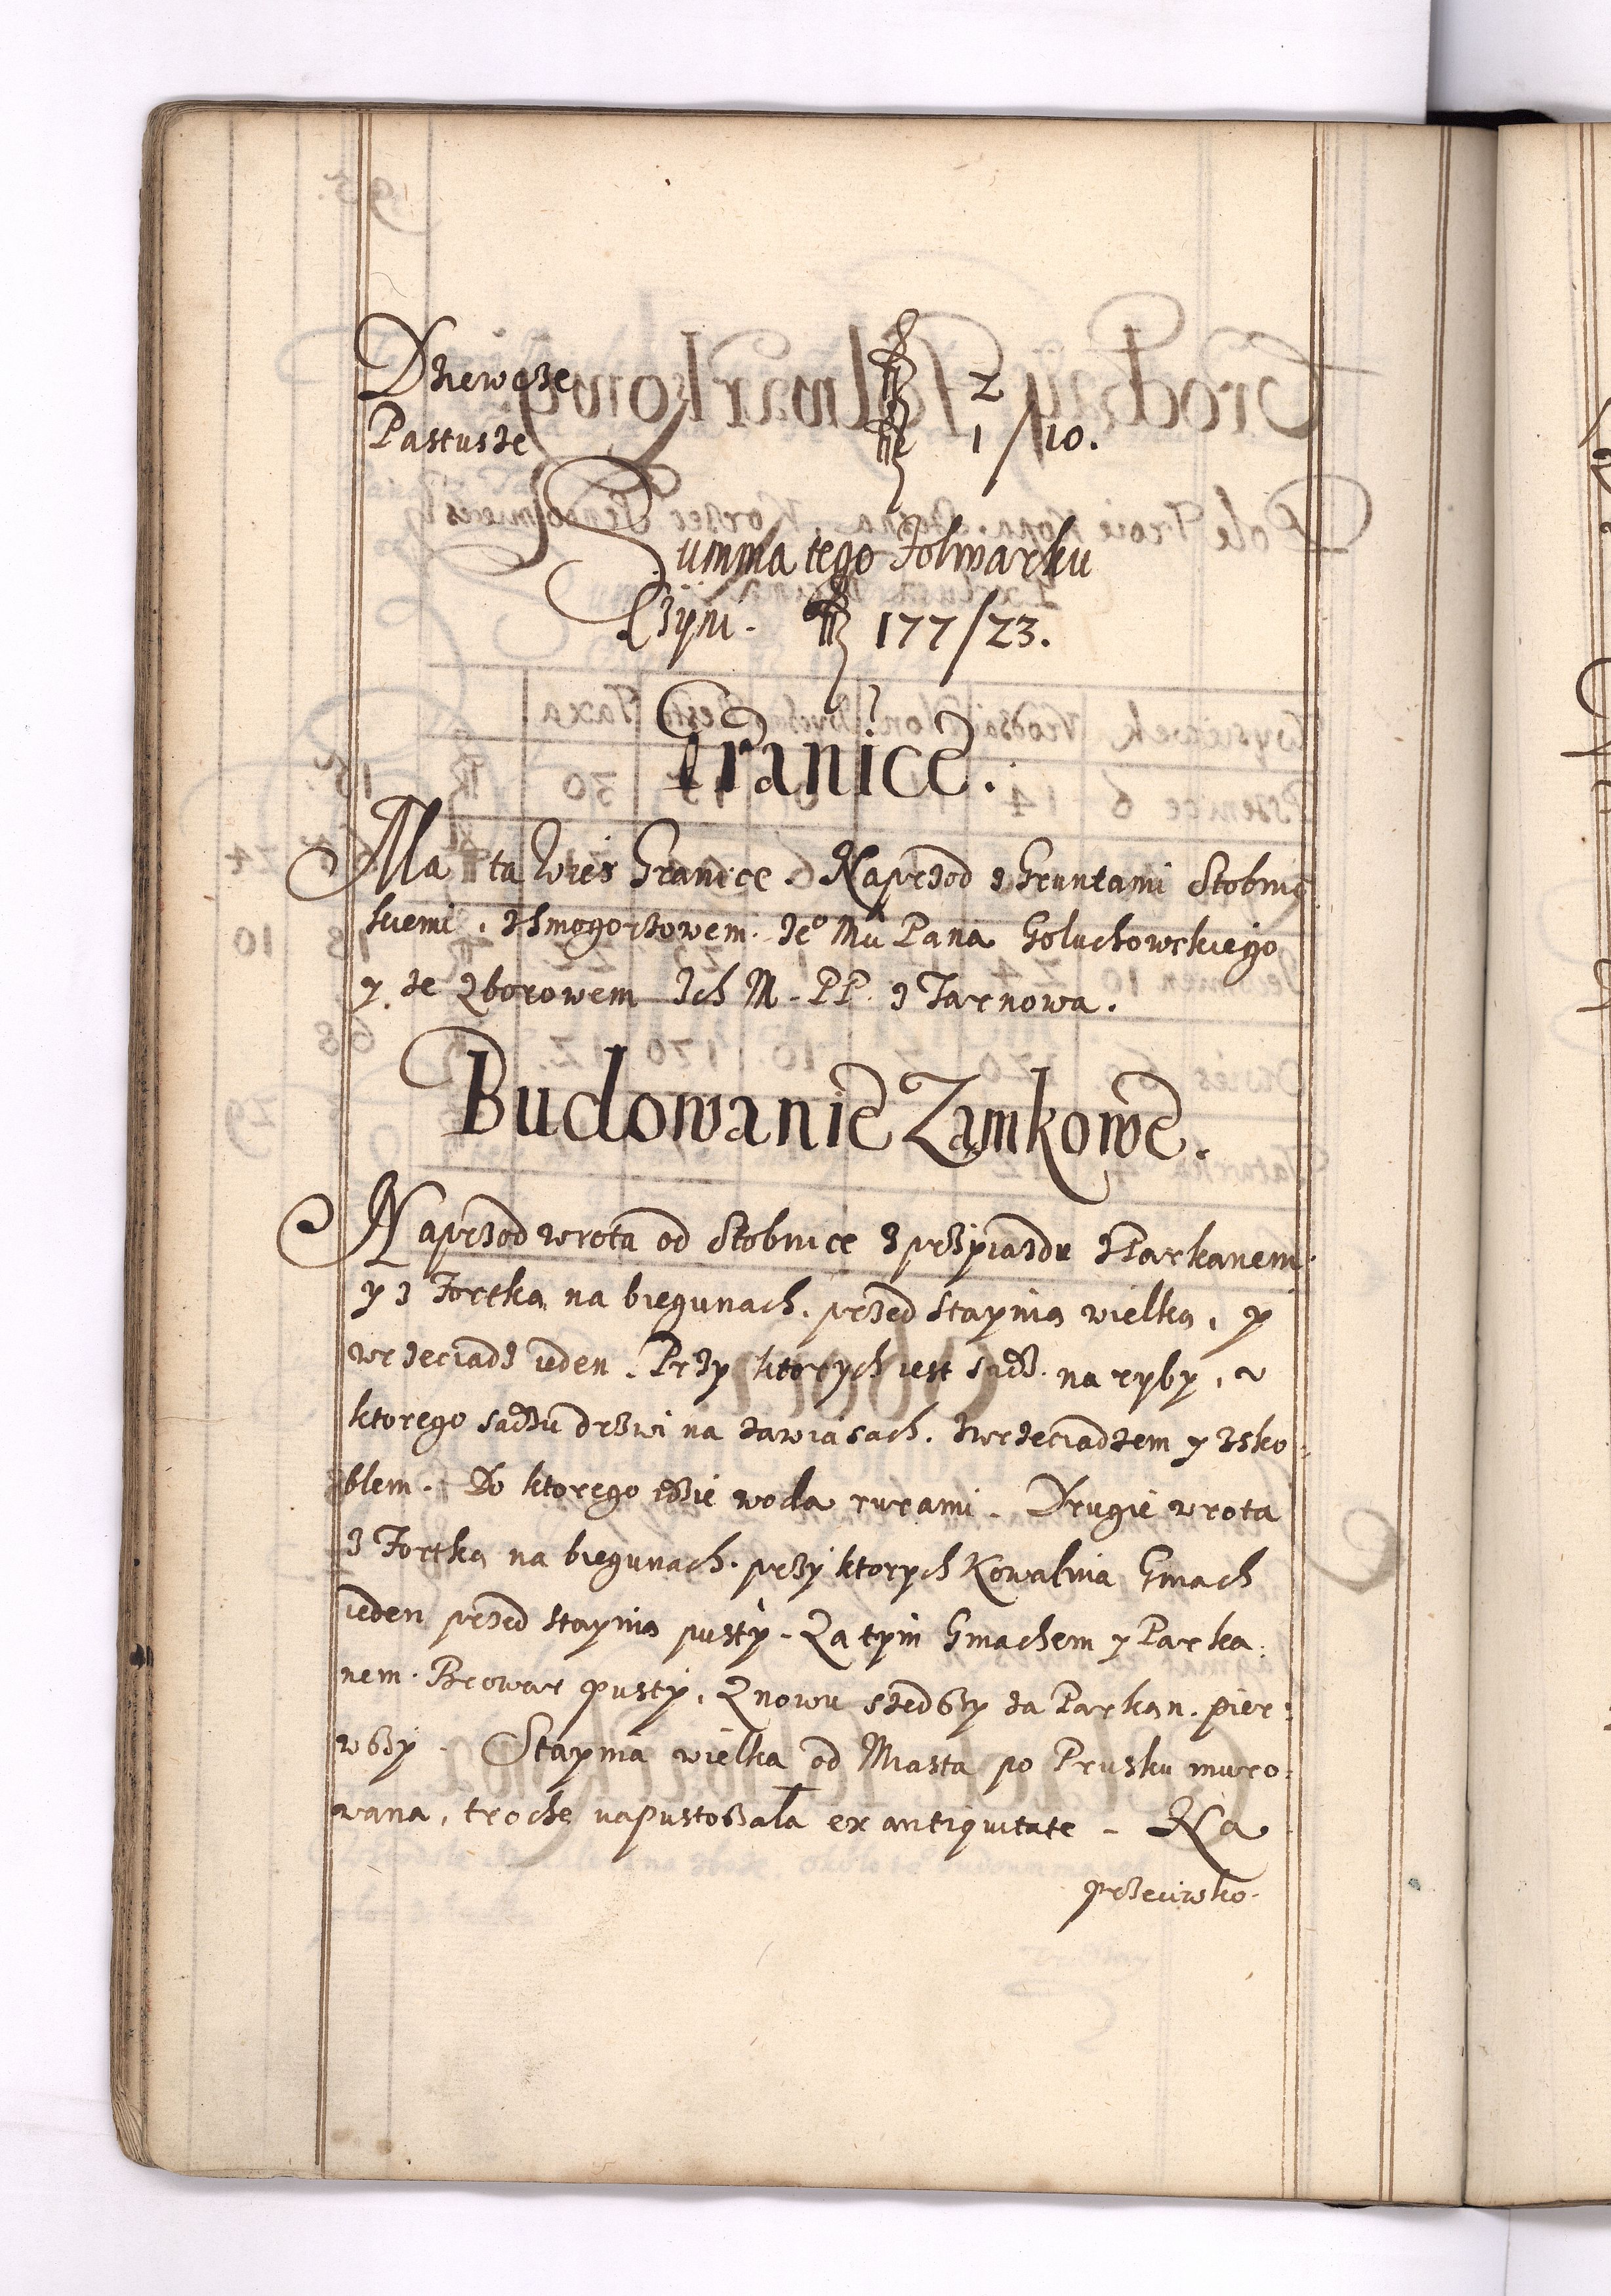 Dziewcze fl 2
Pastusze fl 1/10.
Summa tego Folwarku
Czÿni. fl 177/23.
Granice.
Ma ta Wieś Granice. Naprzod z Gruntami Stobnic
kiemi, z Smogorzowem. Je° Mu Pana Goluchowskiego
y ze Zborowem Ich M. PP. z Tarnowa.
Budowanie Zamkowe.
Naprzod wrota od Stobnice z przÿiazdu z Parkanem
y z Fortką na biegunach. przed staynią wielką, y
wrzeciadz ieden. Przy ktorych iest sadz. na ryby, v
ktorego sadzu drzwi na zawiasach. z wrzeciadzem y z sko:
blem. Do ktorego idzie woda rurami. Drugie wrota
z Fortką na biegunach. przÿ ktorych Kowalnia Gmach
ieden przed staynią pustÿ. Za tÿm Gmachem y Parka:
nem. Browar pustÿ. Znowu szedszy za Parkan. pier:
wszy. Staynia wielka od Miasta po Prusku muro:
wana, troche napustoszała ex antiquitate. Na
przeciwko.